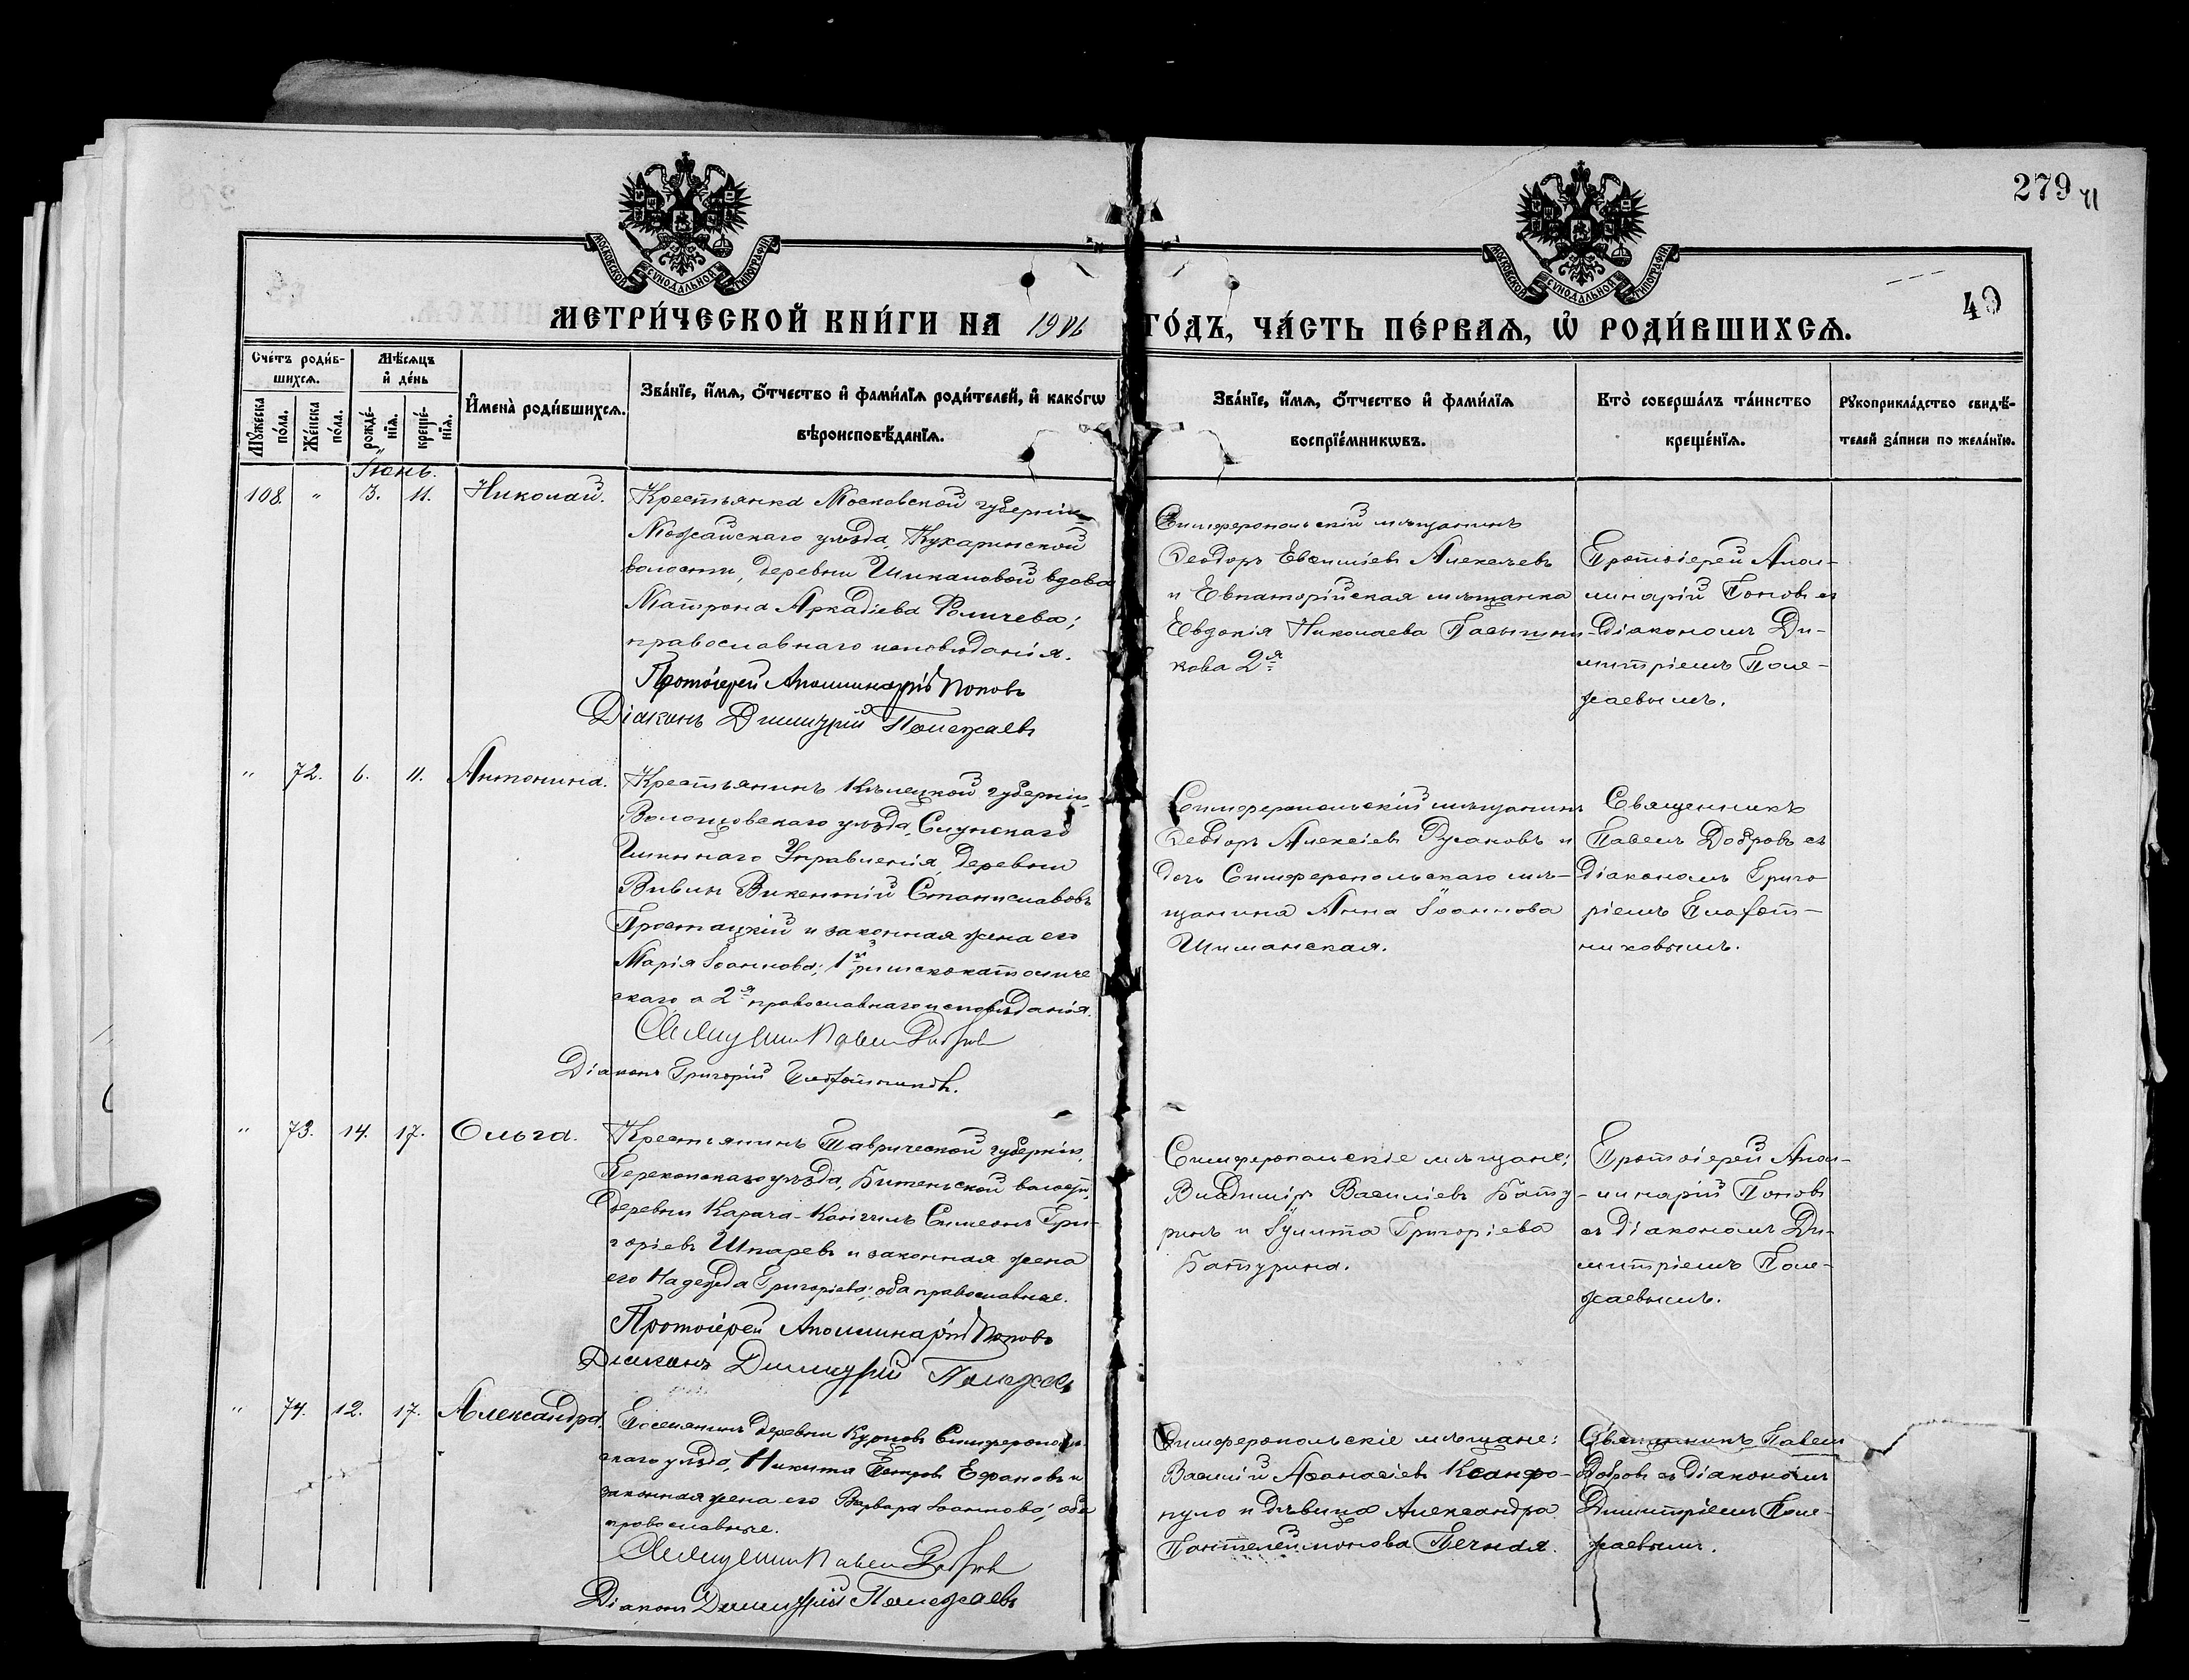 279
49
МОСКОВСКОЙ СѴНОДАЛЬНОЙ ТИПОГРАФІИ
МОСКОВСКОЙ СѴНОДАЛЬНОЙ ТИПОГРАФІИ
МЕТРИ́ЧЕСКОЙ КНИ́ГИ НА 1906 ГО́ДЪ, ЧА́СТЬ ПЕ́РВАѦ, Ѡ҆ РОДИ́ВШИХСѦ.
Сче́тъ роди́в-
шихсѧ.
Мѣ́сѧцъ
и҆ де́нь
Мꙋ́жеска по́ла.
Же́нска по́ла.
рожде́-
нїѧ.
креще́-
нїѧ.
И҆мена̀ роди́вшихсѧ.
Зва́нїе, и҆́мѧ, ѻ҆́тчество и҆ фами́лїѧ роди́телей, и҆ како́гѡ
вѣроисповѣ́данїѧ.
Зва́нїе, и҆́мѧ, ѻ҆́тчество и҆ фами́лїѧ
воспрїе́мникѡвъ.
Кто̀ соверша́лъ та́инство
креще́нїѧ.
Рꙋкоприкла́дство свидѣ́-
телей за́писи по жела́нїю.
Іюнь.
108. " 3. 11. Николай.
Крестьянка Московской губерніи
Можайскаго уѣзда, Кукаринской
волости, деревни Шикаловой вдова
Матрона Аркадіева Фомичева;
православнаго исповѣданія.
Протоіерей Аполлинарій Поповъ
Діаконъ Димитрій Полежаевъ
Симферопольскій мѣщанинъ
Ѳеодоръ Евсиліевъ Алексѣевъ
и Евпаторійская мѣщанка
Евдокія Николаева Пасѣчни-
кова 2я
Протоіерей Апол-
линарій Поповъ съ
Діакономъ Ди-
митріемъ Поле-
жаевымъ.
" 72. 6. 11. Антонина.
Крестьянинъ Кѣлецкой губерніи,
Влощовскаго уѣзда,
Гминнаго Управленія, деревни
Викентій Станиславовъ
и законная жена его
Марія Іоаннова; 1й римскокатоличе
скаго а 2я православнаго исповѣданія.
Священникъ Павелъ Добровъ
Діаконъ Григорій Плотниковъ.
Симферопольскій мѣщанинъ
Ѳеодоръ Алексіевъ Русаковъ и
дочь Симферопольскаго мѣ-
щанина Анна Іоаннова
Шиманская.
Священникъ
Павелъ Добровъ съ
Діакономъ Григо
ріемъ Плот-
никовымъ.
" 73. 14. 17. Ольга.
Крестьянинъ Таврической губерніи,
Перекопскаго уѣзда, Битеньской волости,
деревни Карача-Кангилъ Симеонъ Гри-
горіевъ Шпаревъ и законная жена
его Надежда Григоріева; оба православные.
Протоіерей Аполлинарій Поповъ
Діаконъ Димитрій Полежаевъ
Симферопольскіе мѣщане:
Владиміръ Василіевъ Бату-
ринъ и Іулита Григоріева
Батурина.
Протоіерей Апол-
линарій Поповъ
съ Діакономъ Ди-
митріемъ Поле-
жаевымъ.
" 74. 12. 17. Александра.
Поселянинъ деревни Курцовъ Симферополь-
скаго уѣзда, Никита Петровъ Ефановъ и
законная жена его Варвара Іоаннова; оба
православные.
Священникъ Павелъ Добровъ
Діаконъ Димитрій Полежаевъ
Симферопольскіе мѣщане:
Василій Аѳанасіевъ Ксанфо-
пуло и дѣвица Александра
Пантелеймонова Печная.
Священникъ Павелъ
Добровъ съ Діакономъ
Димитріемъ Поле-
жаевымъ.